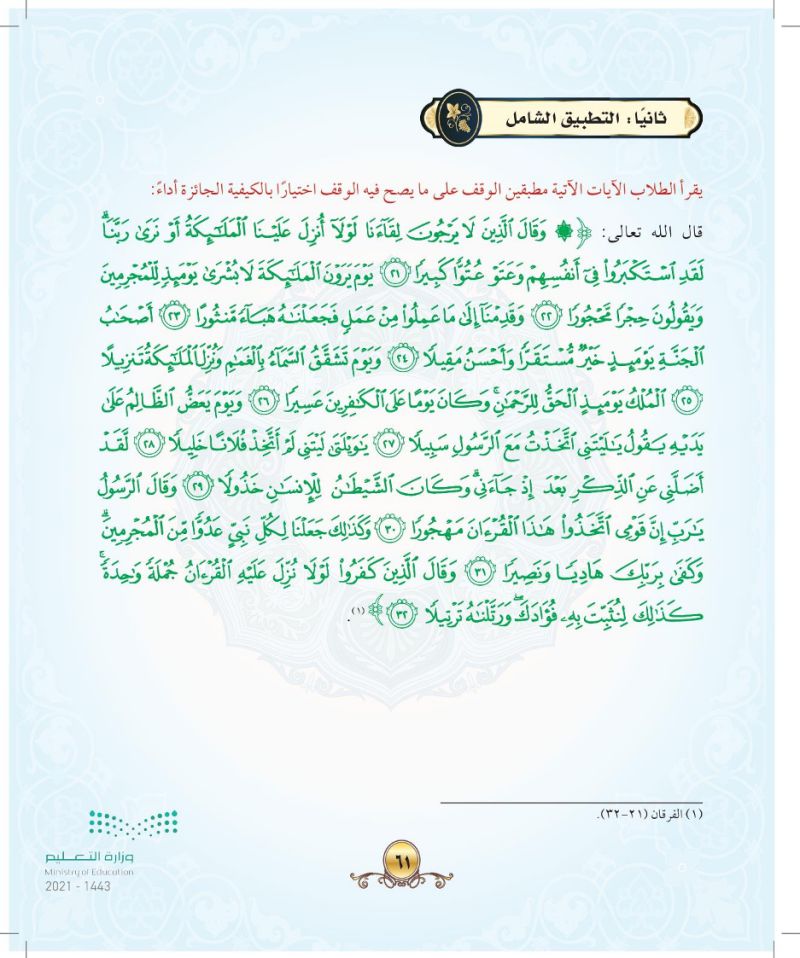 ثانيًا: التطبيق الشامل
يقرأ الطلاب الآيات الآتية مطبقين الوقف على ما يصح فيه الوقف اختيارًا بالكيفية الجائزة أداءً:
قال الله تعالى: ﴿ ۞ وَقَالَ ٱلَّذِينَ لَا يَرْجُونَ لِقَآءَنَا لَوْلَآ أُنزِلَ عَلَيْنَا ٱلْمَلَٰٓئِكَةُ أَوْ نَرَىٰ رَبَّنَاۗ
لَقَدِ ٱسْتَكْبَرُوا۟ فِىٓ أَنفُسِهِمْ وَعَتَوْ عُتُوًّا كَبِيرًا ٢١ يَوْمَ يَرَوْنَ ٱلْمَلَٰٓئِكَةَ لَا بُشْرَىٰ يَوْمَئِذٍ لِّلْمُجْرِمِينَ
وَيَقُولُونَ حِجْرًا مَّحْجُورًا ٢٢ وَقَدِمْنَآ إِلَىٰ مَا عَمِلُوا۟ مِنْ عَمَلٍ فَجَعَلْنَٰهُ هَبَآءً مَّنثُورًا ٢٣ أَصْحَٰبُ
ٱلْجَنَّةِ يَوْمَئِذٍ خَيْرٌ مُّسْتَقَرًّا وَأَحْسَنُ مَقِيلًا ٢٤ وَيَوْمَ تَشَقَّقُ ٱلسَّمَآءُ بِٱلْغَمَٰمِ وَنُزِّلَ ٱلْمَلَٰٓئِكَةُ تَنزِيلًا
٢٥ ٱلْمُلْكُ يَوْمَئِذٍ ٱلْحَقُّ لِلرَّحْمَٰنِۚ وَكَانَ يَوْمًا عَلَى ٱلْكَٰفِرِينَ عَسِيرًا ٢٦ وَيَوْمَ يَعَضُّ ٱلظَّالِمُ عَلَىٰ
يَدَيْهِ يَقُولُ يَٰلَيْتَنِى ٱتَّخَذْتُ مَعَ ٱلرَّسُولِ سَبِيلًا ٢٧ يَٰوَيْلَتَىٰ لَيْتَنِى لَمْ أَتَّخِذْ فُلَانًا خَلِيلًا ٢٨ لَّقَدْ
أَضَلَّنِى عَنِ ٱلذِّكْرِ بَعْدَ إِذْ جَآءَنِىۗ وَكَانَ ٱلشَّيْطَٰنُ لِلْإِنسَٰنِ خَذُولًا ٢٩ وَقَالَ ٱلرَّسُولُ
يَٰرَبِّ إِنَّ قَوْمِى ٱتَّخَذُوا۟ هَٰذَا ٱلْقُرْءَانَ مَهْجُورًا ٣٠ وَكَذَٰلِكَ جَعَلْنَا لِكُلِّ نَبِىٍّ عَدُوًّا مِّنَ ٱلْمُجْرِمِينَۗ
وَكَفَىٰ بِرَبِّكَ هَادِيًا وَنَصِيرًا ٣١ وَقَالَ ٱلَّذِينَ كَفَرُوا۟ لَوْلَا نُزِّلَ عَلَيْهِ ٱلْقُرْءَانُ جُمْلَةً وَٰحِدَةًۚ
كَذَٰلِكَ لِنُثَبِّتَ بِهِۦ فُؤَادَكَۖ وَرَتَّلْنَٰهُ تَرْتِيلًا ٣٢ ﴾(١).
(١) الفرقان (٢١-٣٢).
وزارة التعليم
Ministry of Education
2021 - 1443
٦١